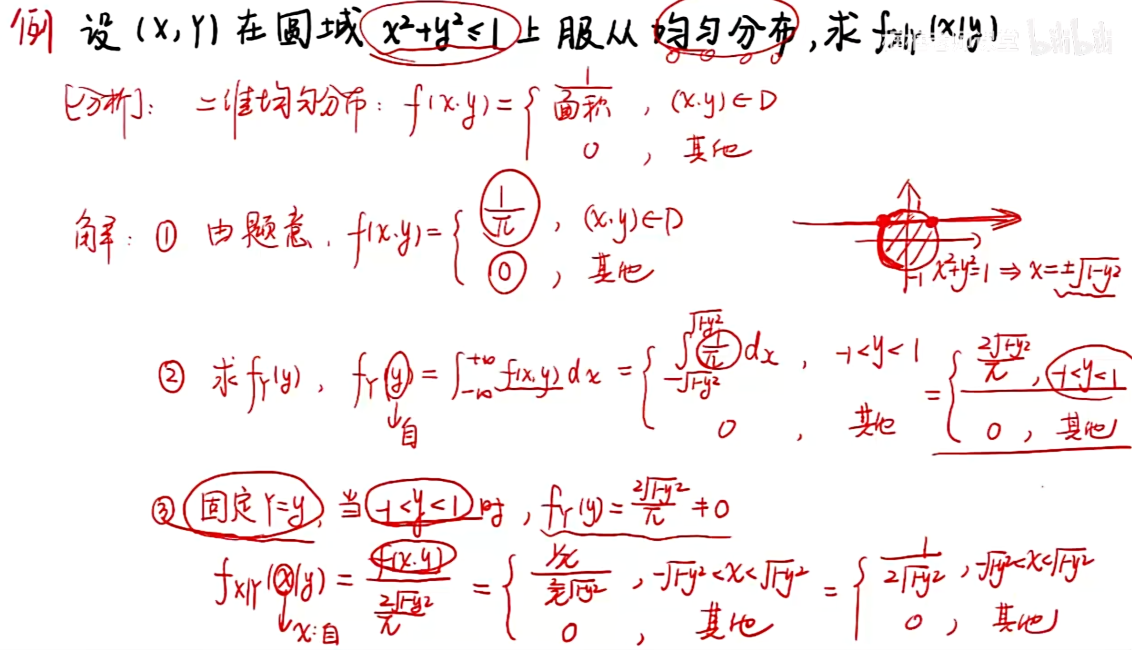 例 设 (X,Y) 在圆域 x²+y²≤1 上服从 均匀分布, 求 f_{X|Y}(x|y)
bilibili
[分析]: 二维均匀分布: f(x,y) = { 1/面积 , (x,y)∈D
0 , 其他
解: ① 由题意, f(x,y) = { 1/π , (x,y)∈D
0 , 其他
-1 x²+y²=1 ⇒ x=±√1-y²
② 求 f_Y(y), f_Y(y) = ∫_{-∞}^{+∞} f(x,y) dx = { ∫_{-√1-y²}^{√1-y²} 1/π dx , -1<y<1 = { 2√1-y²/π , -1<y<1
0 , 其他 0 , 其他
↓自
③ 固定Y=y, 当 -1<y<1 时, f_Y(y) = 2√1-y²/π ≠ 0
f_{X|Y}(x|y) = f(x,y) / (2√1-y²/π) = { 1/π / (2/π √1-y²) , -√1-y²<x<√1-y² = { 1/(2√1-y²) , -√1-y²<x<√1-y²
0 , 其他 0 , 其他
↓x:自